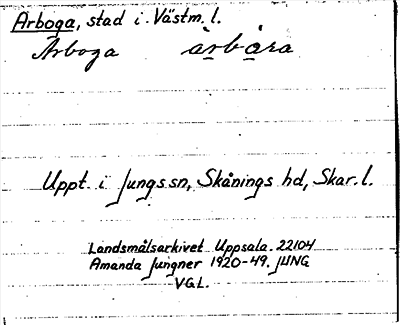 Arboga, stad i Västm. l.
Arboga àrbåra
Uppt. i Jungs sn, Skånings hd, Skar. l.
Landsmålsarkivet Uppsala. 22104
Amanda Jungner 1920-49. JUNG
VGL.